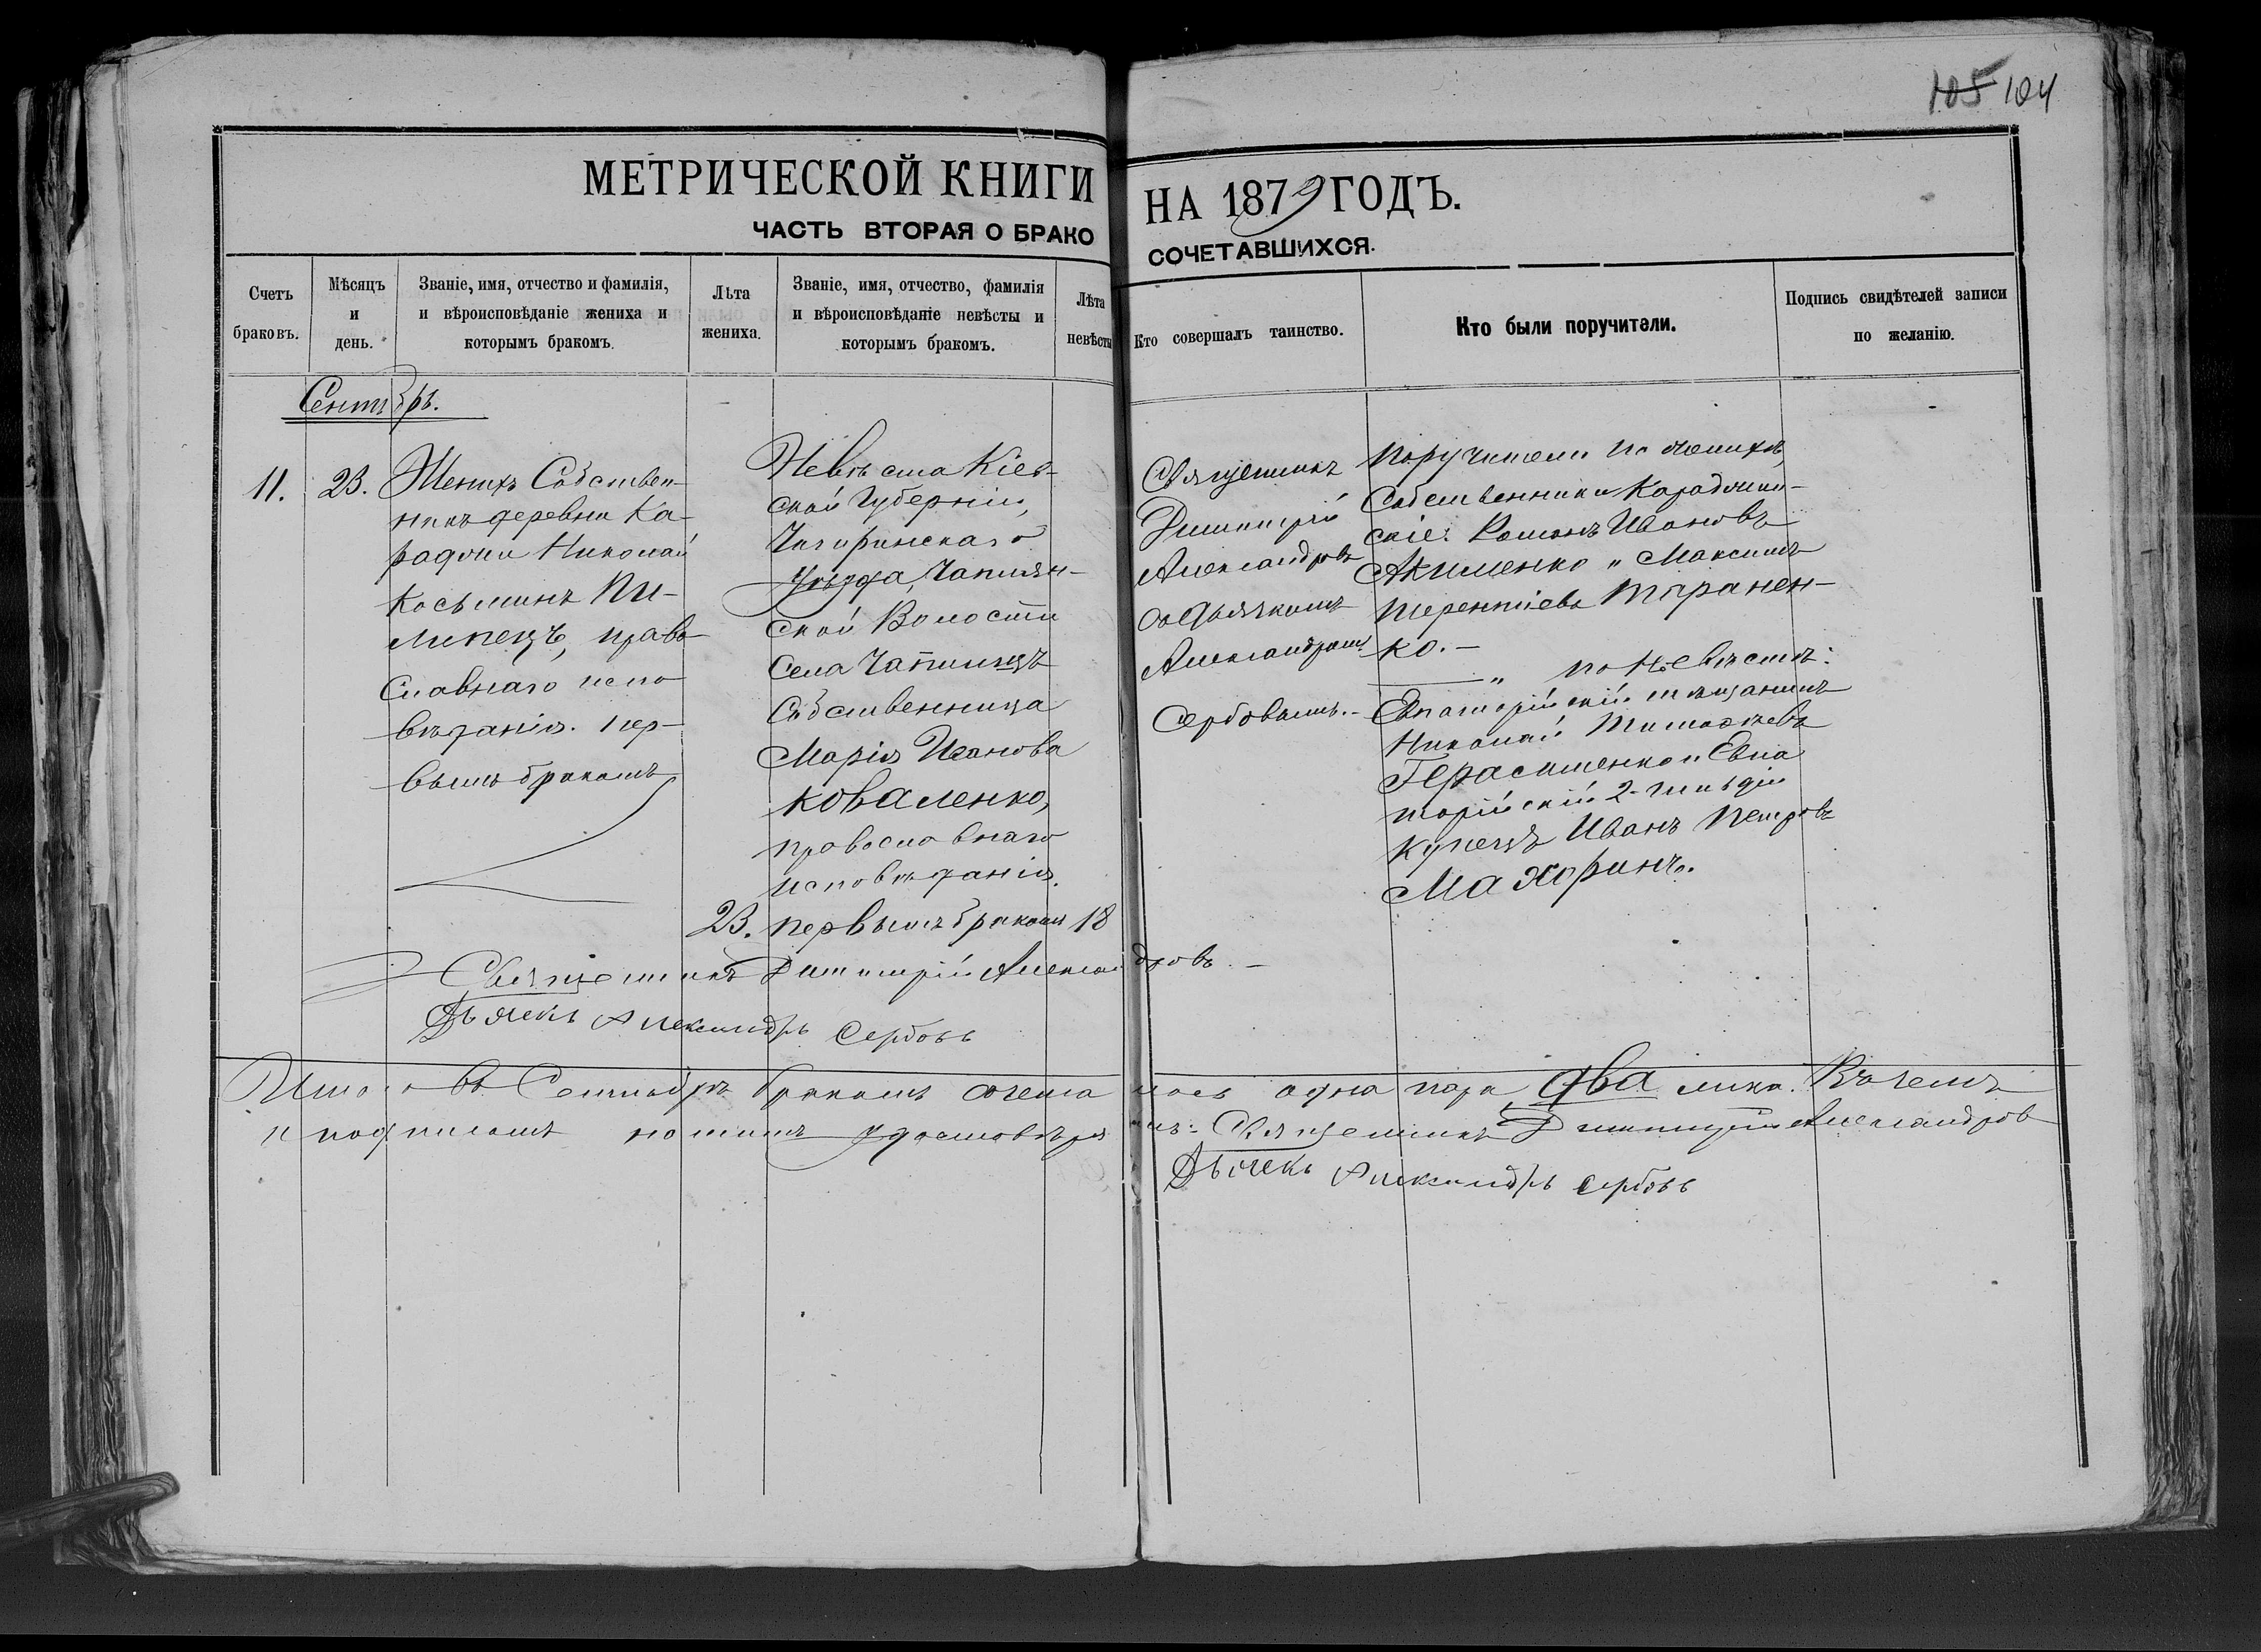 105 104
МЕТРИЧЕСКОЙ КНИГИ НА 1879 ГОДЪ.
ЧАСТЬ ВТОРАЯ О БРАКОСОЧЕТАВШИХСЯ.
Счетъ браковъ.
Мѣсяцъ и день.
Званіе, имя, отчество и фамилія,
и вѣроисповѣданіе жениха и
которымъ бракомъ.
Лѣта
жениха.
Званіе, имя, отчество, фамилія
и вѣроисповѣданіе невѣсты и
которымъ бракомъ.
Лѣта
невѣсты
Кто совершалъ таинство.
Кто были поручители.
Подпись свидѣтелей записи
по желанію.
Сентябрь.
11.
23.
Женихъ Собствен-
никъ деревни Ка-
раджи Николай
Косьминъ Пи-
липецъ, право-
славнаго испо-
вѣданія. пер-
вымъ бракомъ
23.
Невѣста Кіев-
ской Губерніи,
Чигиринскаго
Уѣзда, Чаплин-
ской Волости
Села Чаплищъ
Собственница
Марія Иванова
Коваленко,
православнаго
исповѣданія.
первымъ бракомъ
18
Священникъ
Димитрій
Александровъ
съ дьячкомъ
Александромъ
Сербовымъ.-
Поручители по женихѣ,
Собственники Караджин-
скіе: Романъ Ивановъ
Акименко и Максимъ
Терентіевъ Таранен-
ко.-
—„ по Невѣстѣ:
Евпаторійскій мѣщанинъ
Николай Тимофѣевъ
Герасименко и Евпа
торійскій 2-гильдіи
купецъ Иванъ Петровъ
Махоринъ.
Священникъ Димитрій Александровъ.-
Дьячекъ Александръ Сербовъ
Итого въ Сентябрѣ бракомъ сочеталось одна пара, два лика. Въ чемъ
и подписомъ нашимъ удостовѣряемъ: Священникъ Димитрій Александровъ
Дьячекъ Александръ Сербовъ